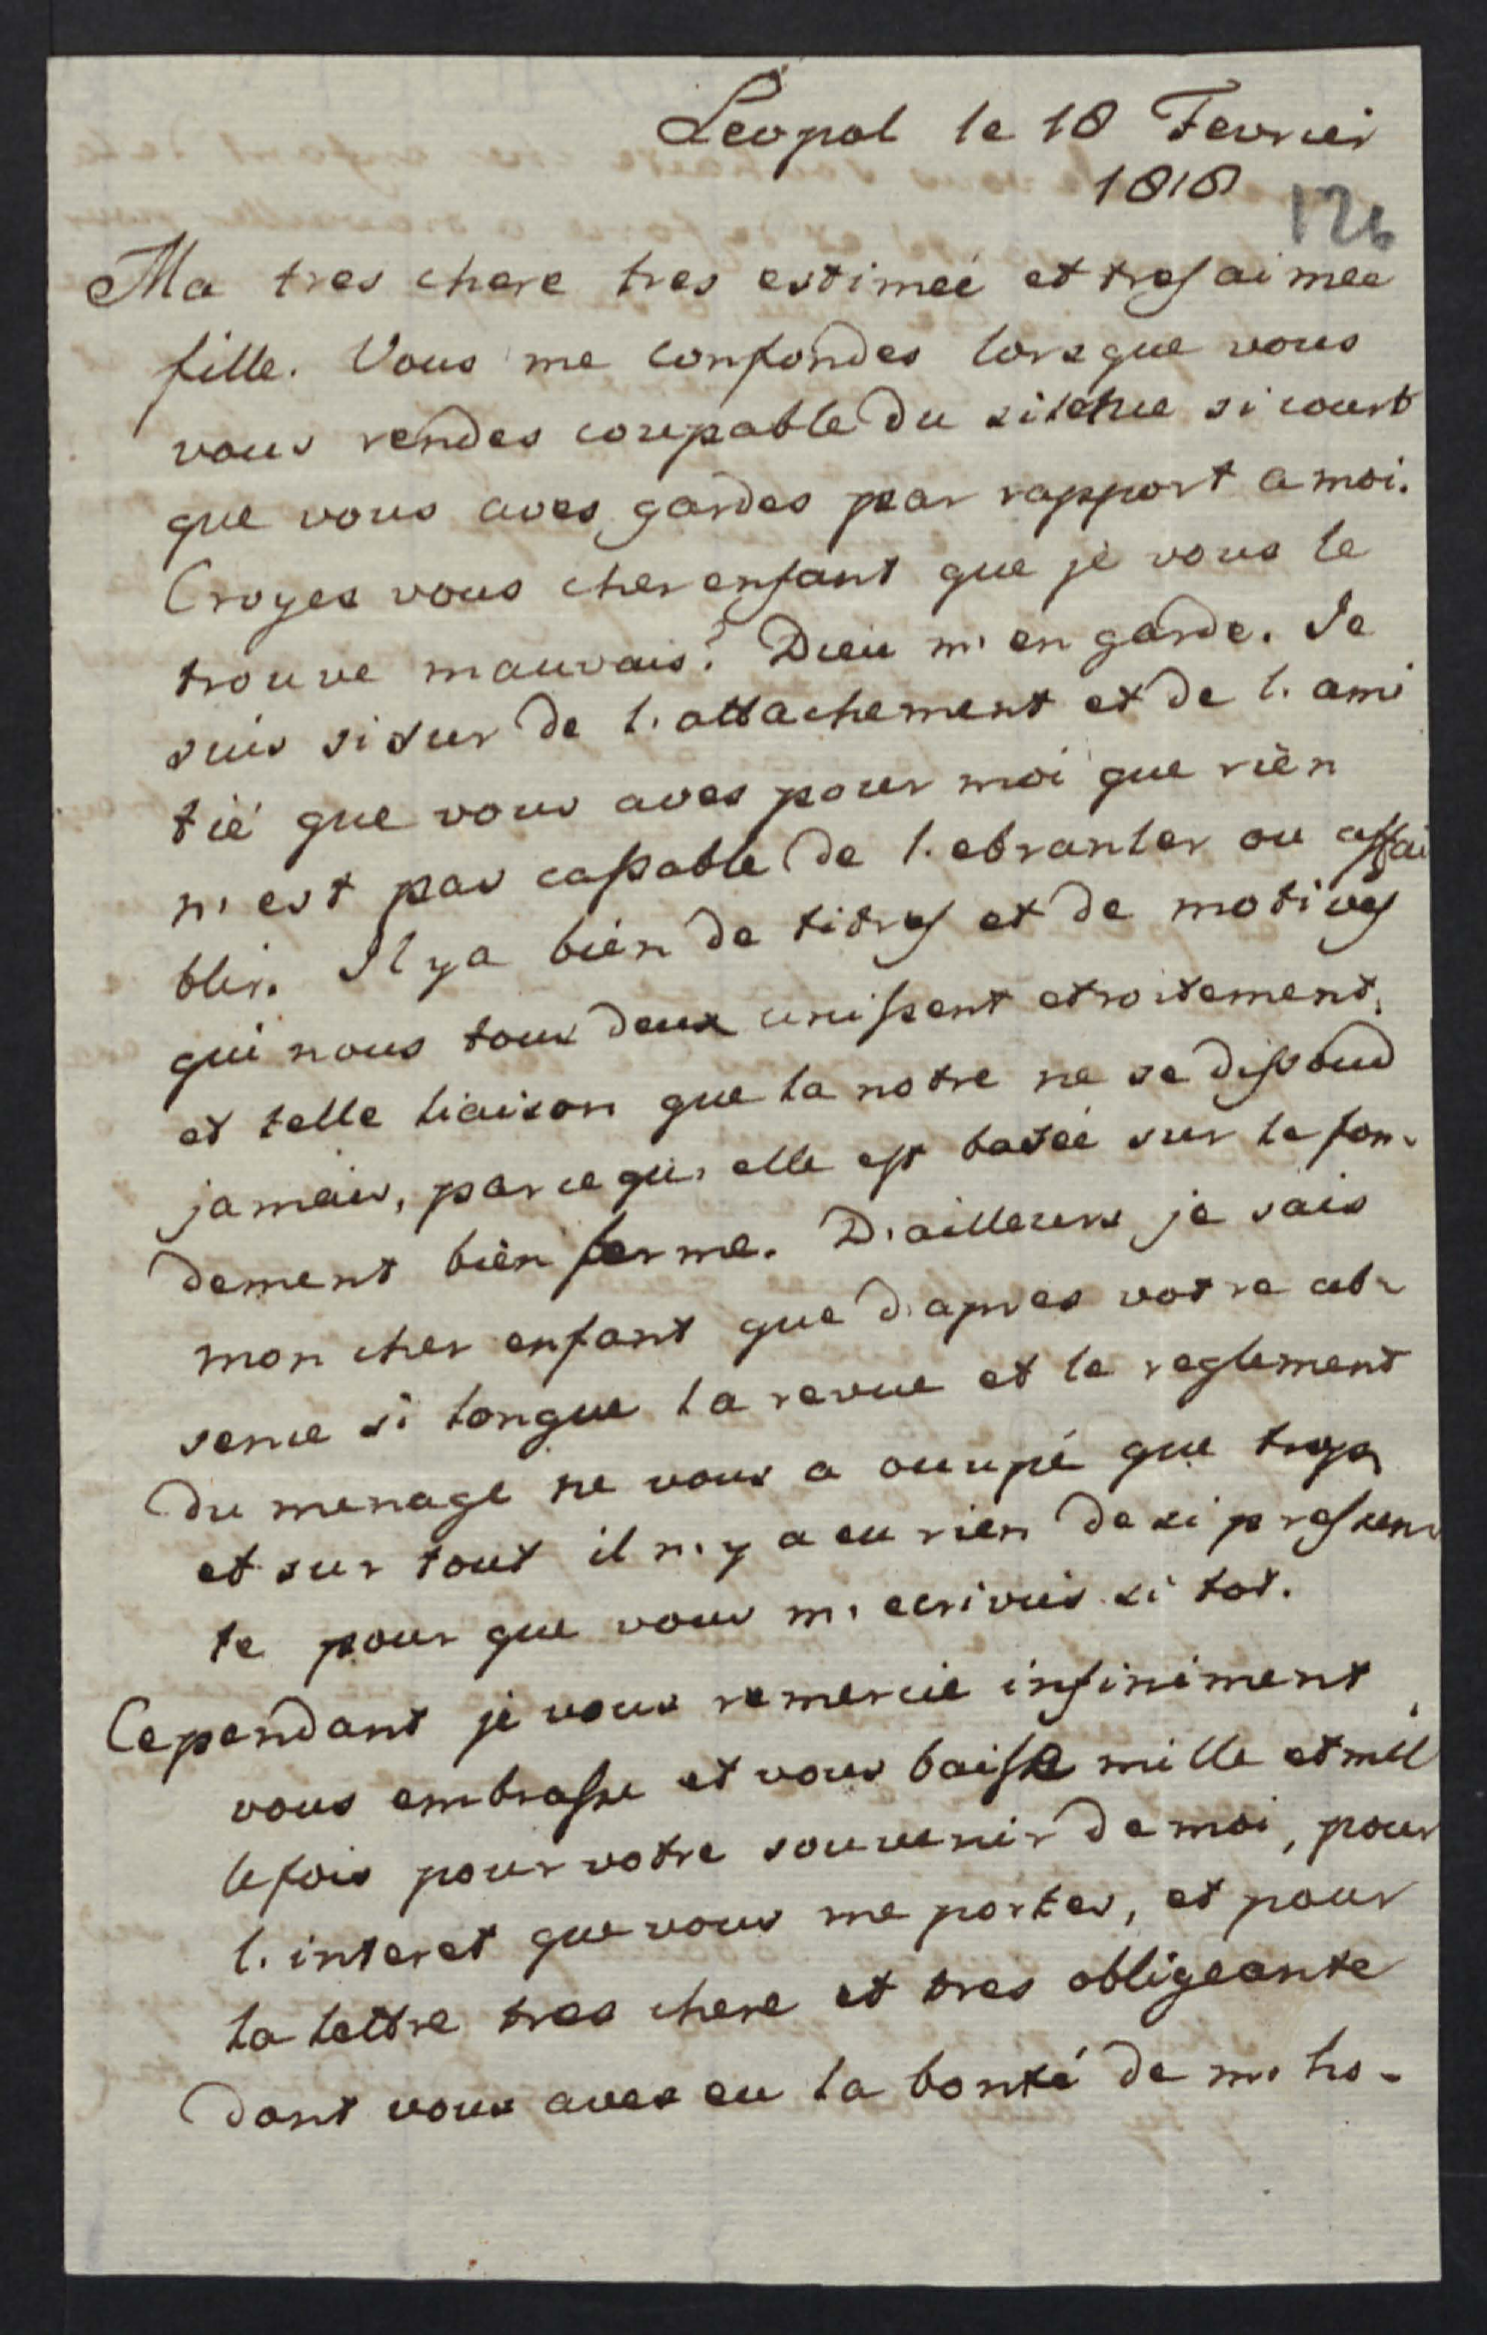 Léopol le 18 Fevrier
1818
126
Ma tres chere tres estimeé et tres aimee
fille. Vous me confondes lorsque vous
vous rendes coupable du silence si court
que vous aves gardes par rapport a moi.
Croyes vous cher enfant que je vous le
trouve mauvais? Dieu m'en garde. Je
suis si sur de l'attachement et de l'ami
tié que vous aves pour moi que rien
n'est pas capable de l'ebranler ou affai
blir. Il y a bien de titres et de motives
qui nous tous deux unissent etroitement,
et telle liaison que la notre ne se dissoud
jamais, parcequ'elle est baseé sur le fon-
dement bien ferme. D'ailleurs je sais
mon cher enfant que d'apres votre ab-
sence si longue la revue et le reglement
du menage ne vous a occupé que trop,
et sur tout il n'y a eu rien de si pressen
te pour que vous m'ecrivies si tot.
Cependant je vous remercie infiniment,
vous embrasse et vous baise mille et mil
le fois pour votre souvenir de moi, pour
l'interet que vous me portes, et pour
la lettre tres chere et tres obligeante
dont vous aves eu la bonté de m'ho-